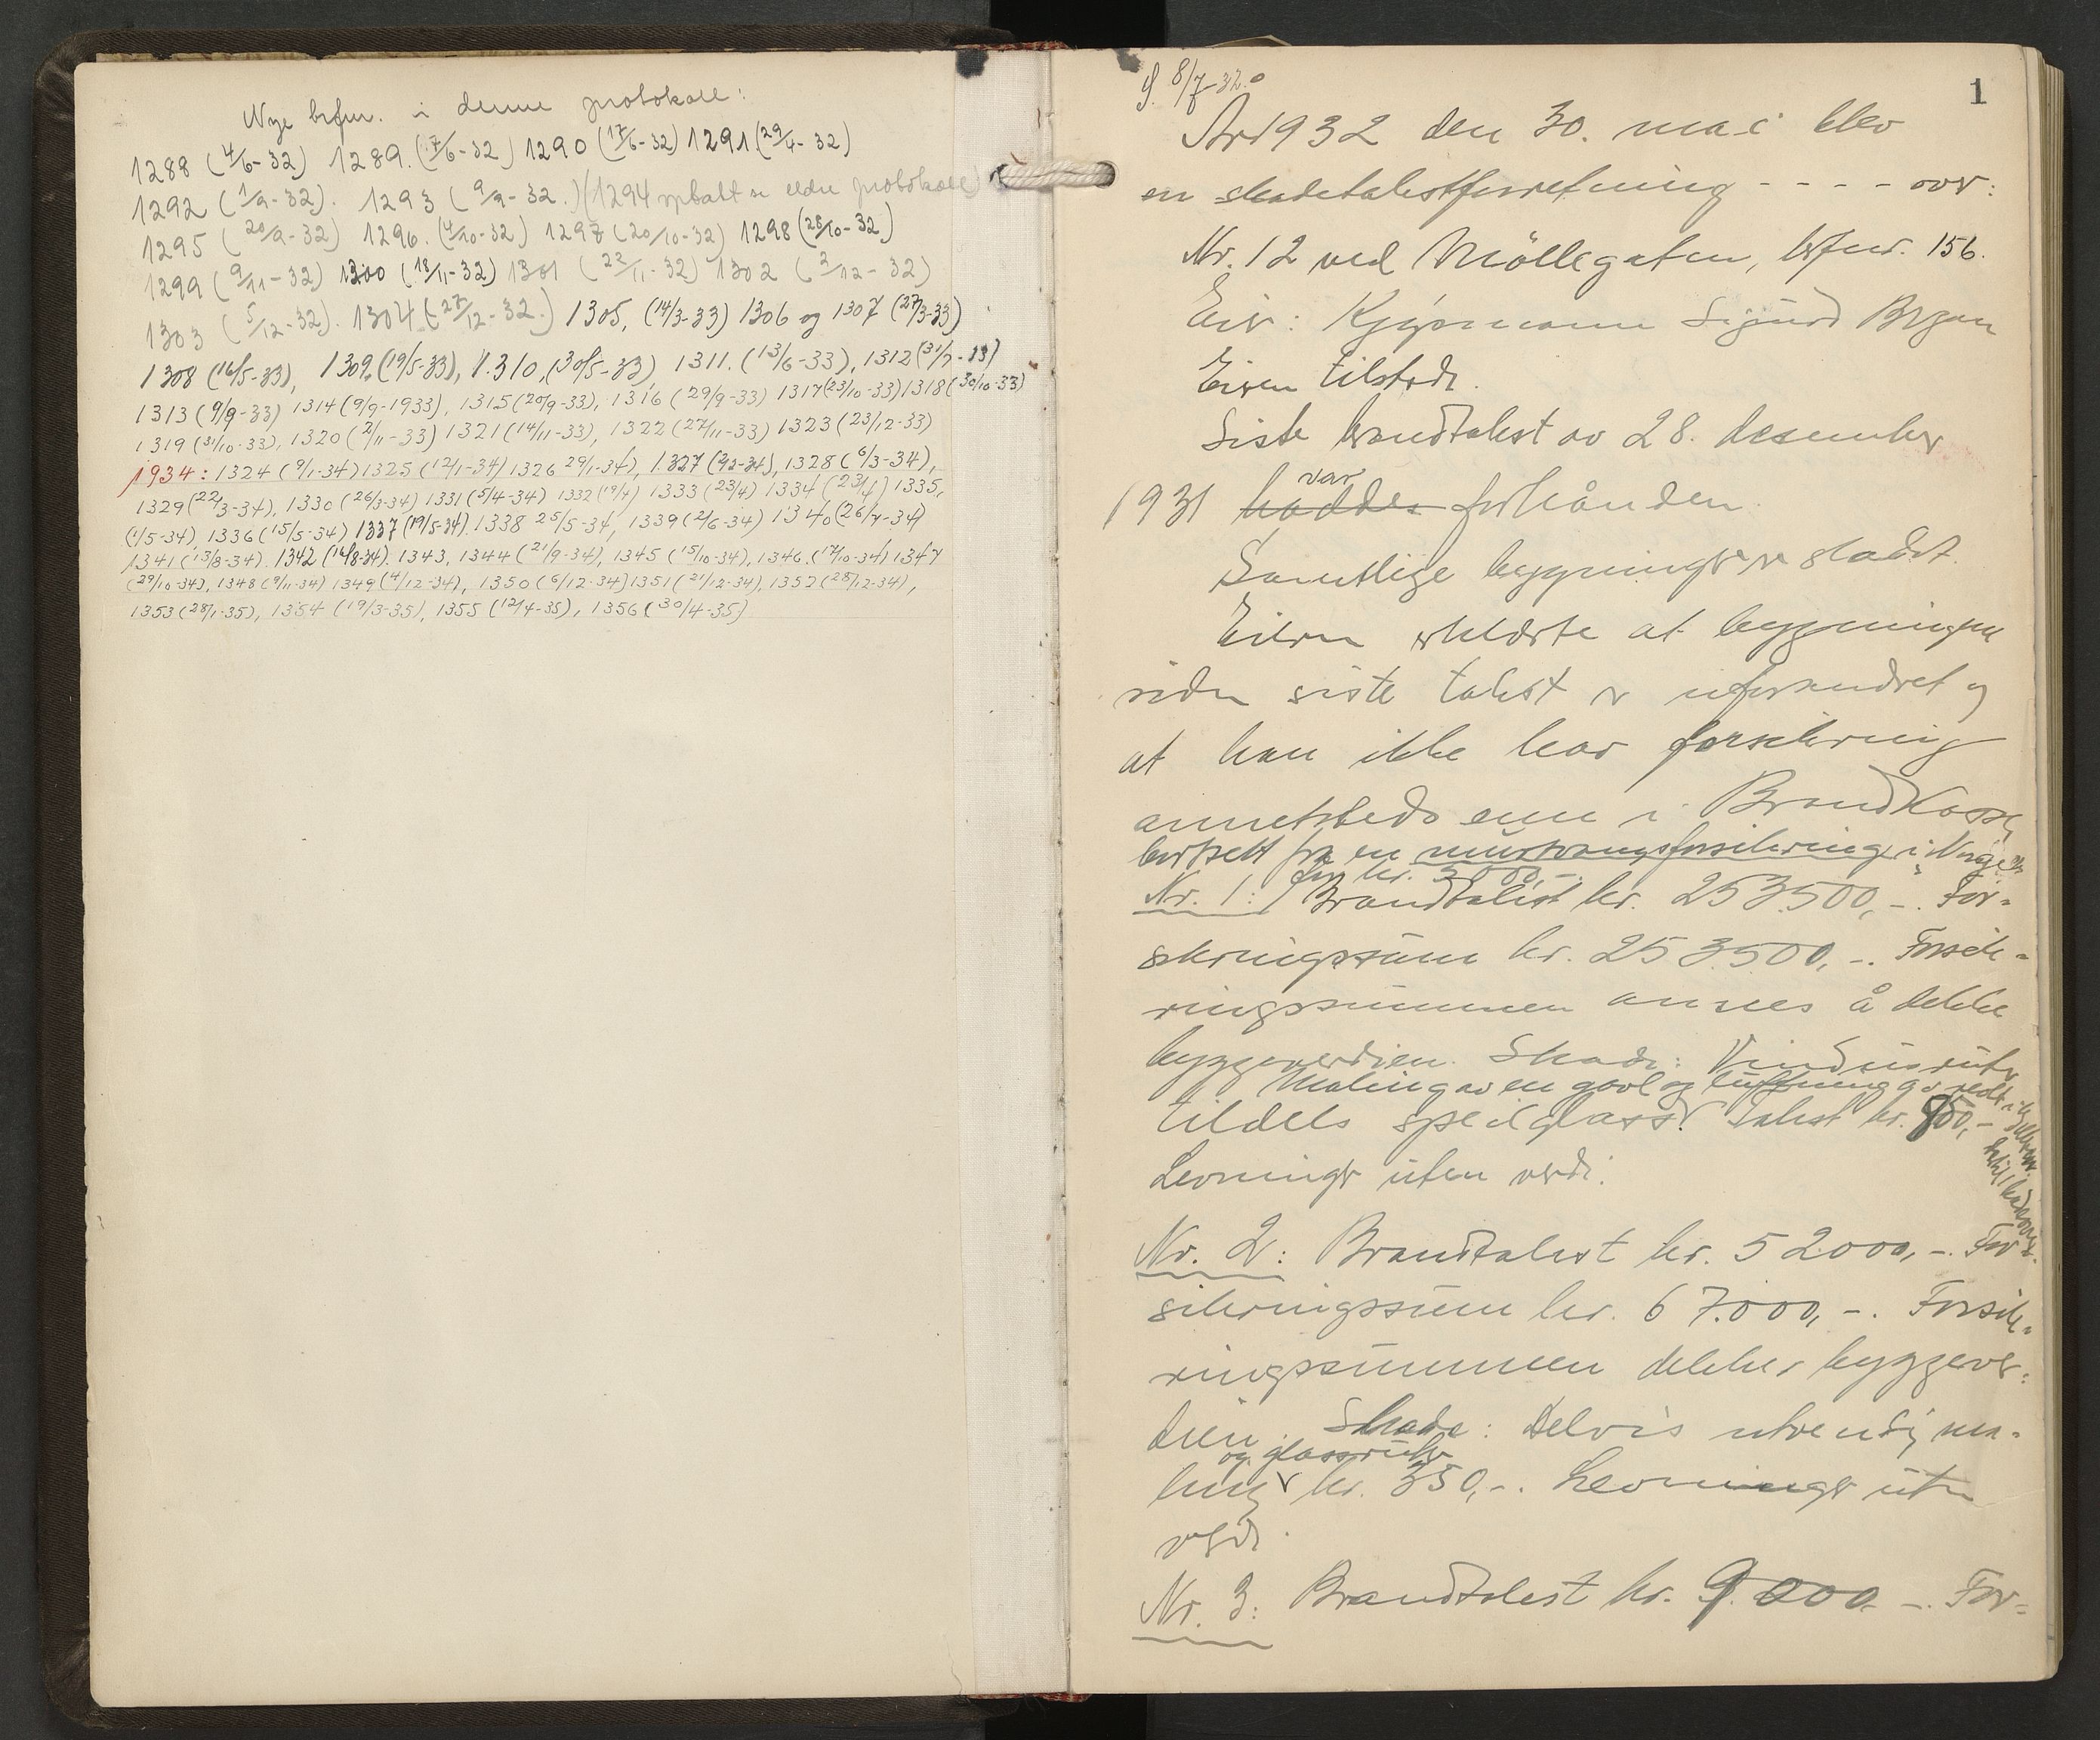 Nye brfnr. i denne protokoll:
1288 (4/6-32) 1289. (7/6-32) 1290 (17/6-32) 1291 (29/4-32)
1292 (1/9-32). 1293 (9/9-32.) (1294 opbatt se eldre protokoll)
1295 (20/9-32) 1296. (4/10-32) 1297 (20/10-32) 1298 (28/10-32)
1299 (9/11-32) 1300 (18/11-32) 1301 (22/11-32) 1302 (2/12-32)
1303 (5/12-32). 1304. (27/12-32.) 1305, (14/3-33) 1306 og 1307 (27/3-33)
1308 (16/5-33), 1309, (19/5-33), 1310, (30/5-33) 1311. (13/6-33), 1312 (31/7-33)
1313 (9/9-33) 1314 (9/9-1933), 1315 (20/9-33), 1316 (29/9-33) 1317 (23/10-33) 1318 (30/10-33)
1319 (31/10-33), 1320 (2/11-33) 1321 (14/11-33), 1322 (27/11-33) 1323 (23/12-33)
1934: 1324 (9/1-34) 1325 (12/1-34) 1326 29/1-34), 1327 (2/2-34), 1328 (6/3-34),
1329 (22/3-34), 1330 (26/3-34) 1331 (5/4-34) 1332 (19/4) 1333 (23/4) 1334 (23/4) 1335,
(1/5-34), 1336 (15/5-34) 1337 (19/5-34). 1338 25/5-34, 1339 (2/6-34) 1340 (26/7-34)
1341 (13/8-34). 1342 (16/8-34). 1343, 1344 (21/9-34), 1345 (15/10-34), 1346. (17/10-34) 1347
(29/10-34), 1348 (9/11-34) 1349 (4/12-34), 1350 (6/12-34) 1351 (21/12-34), 1352 (28/12-34),
1353 (28/1-35), 1354 (19/3-35), 1355 (12/4-35), 1356 (30/4-35)
S. 8/7-32.
1
År 1932 den 30. mai blev
en skadetakstforretning - - - - over:
Nr. 12 ved Möllegaten, brfnr. 156.
Eier: Kjöpmann Sigurd Brgan
Eieren tilstede.
Siste brandtakst av 28. desember
var
1931 hadde forhånden.
Samtlige bygninger er skadet.
Eieren erklærte at bygningene
siden siste takst er uforandret og
at han ikke har forsikring
annetsteds enn i Brandkassen,
bortsett fra en merkrangsforsikring i Norge
for kr. 3000,-.
Nr. 1: Brandtakst kr. 253500,-. For-
sikringssum kr. 253.500,-. Forsik-
ringssummen ansees å dekke
byggeverdien. Skade: Vindusruter
Maling av en gavl og
tildels speilglass. Takst kr. 850,-
Levninger uten verdi.
Nr. 2: Brandtakst kr. 52000,-. For-
sikringssum kr. 67.000,-. Forsik-
ringssummen dekker byggever-
dien. Skade: Delvis utvendig ma-
og glassruter
ling kr. 350,-. Levninger uten
verdi.
Nr. 3: Brandtakst kr. 9.000,-. For-